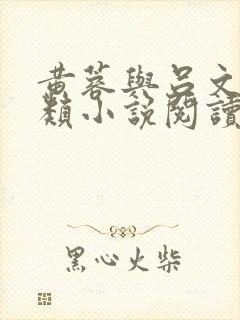 黄蓉與呂文
類小說閱讀
黑心火柴